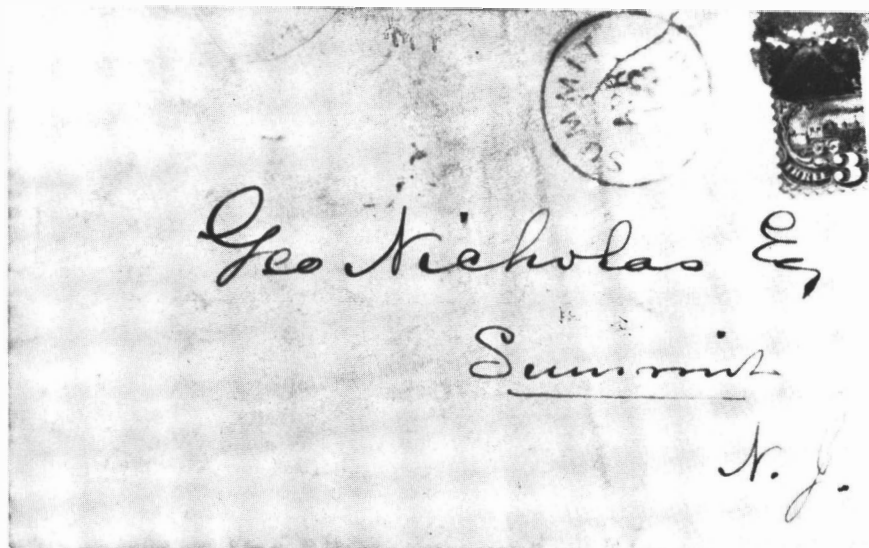 SUMMIT
APR
THREE 3
Geo Nicholas Eq
Summit
N. J.